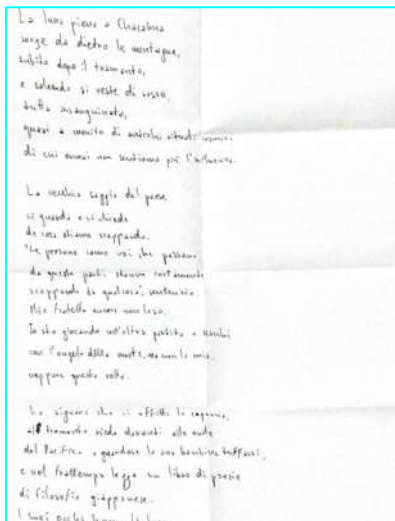 La luna piena a Chacahua
sorge da dietro le montagne,
subito dopo il tramonto,
e salendo si veste di rosso,
tutta insanguinata,
quasi a monito di antichi rituali cosmici
di cui ormai non sentiamo più l'influenza.
La vecchia saggia del paese
ci guarda e ci chiede
da cosa stiamo scappando.
"Le persone come voi che passano
da queste parti stanno certamente
scappando da qualcosa", sentenzia.
Mio fratello ancora non lo sa.
Io sto giocando un'altra partita a scacchi
con l'angelo della morte, ma non lo sono,
neppure questa volta.
La signora che ci affitta la capanna,
al tramonto siede davanti alle onde
del Pacifico a guardare la sua bambina tuffarsi,
e nel frattempo legge un libro di poesie
di filosofia giapponese.
I suoi occhi